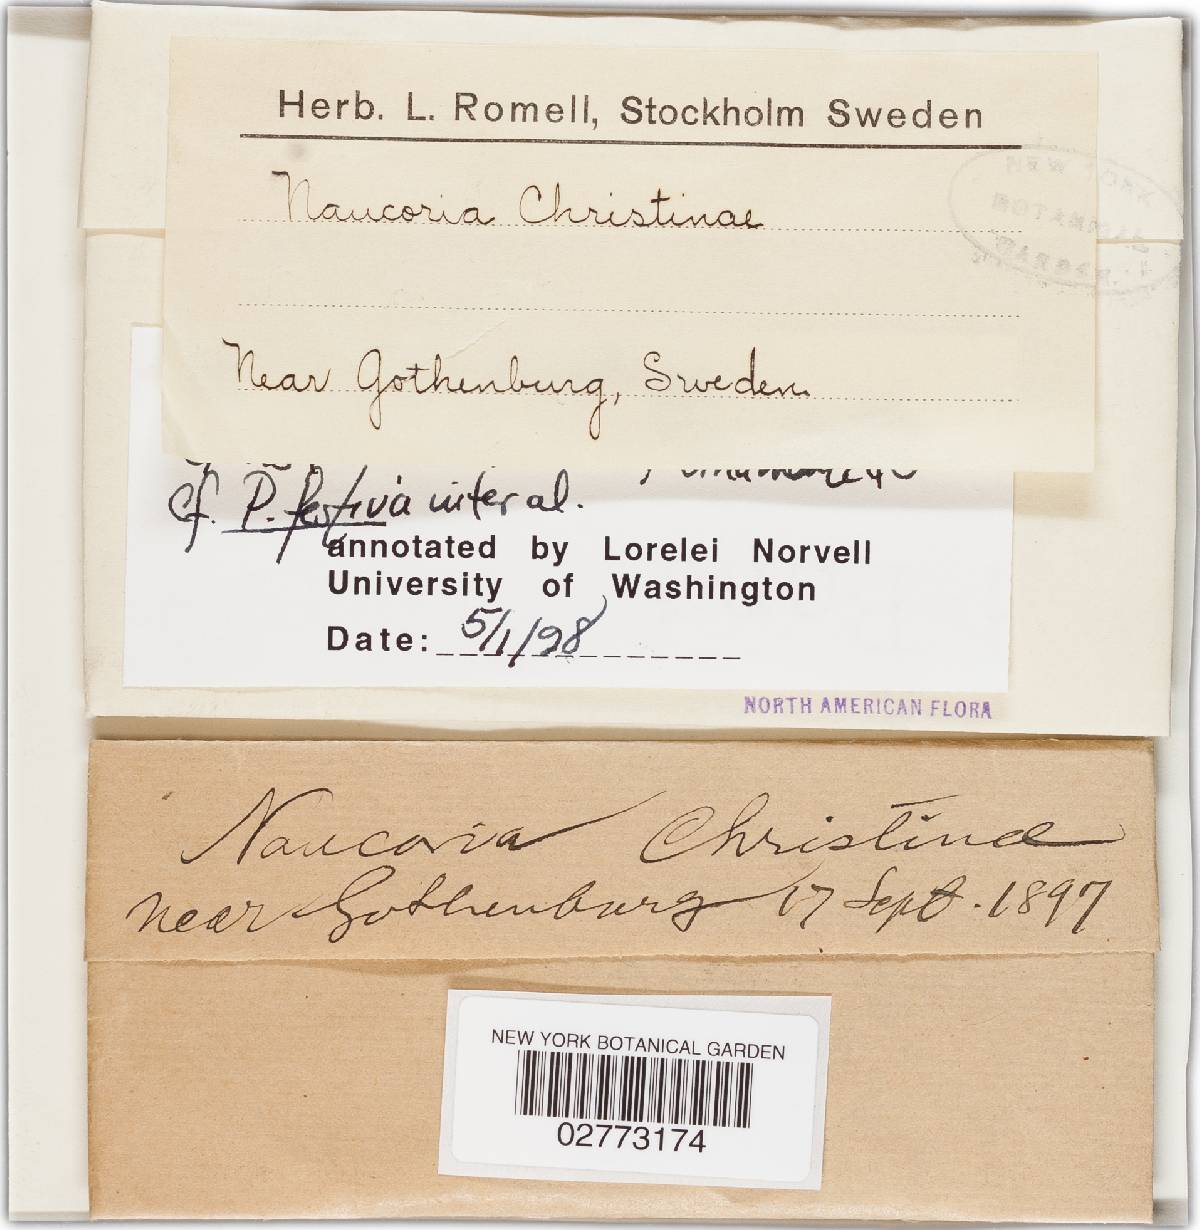 Herb. L. Romell, Stockholm Sweden
Naucoria Christinae
Near Gothenburg, Sweden.
cf. P. festiva inter al.
annotated by Lorelei Norvell
University of Washington
Date: 5/1/98
NORTH AMERICAN FLORA
Naucoria Christinae
near Gothenburg 17 Sept. 1897
NEW YORK BOTANICAL GARDEN
02773174